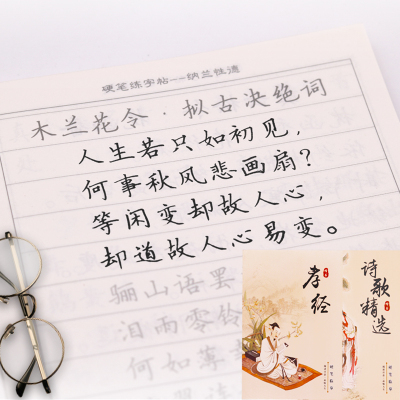 硬笔练字帖--纳兰性德
木兰花令·拟古决绝词
人生若只如初见，
何事秋风悲画扇？
等闲变却故人心，
却道故人心易变。
骊山语罢
泪雨零铃
何如薄幸
孝经
诗歌精选